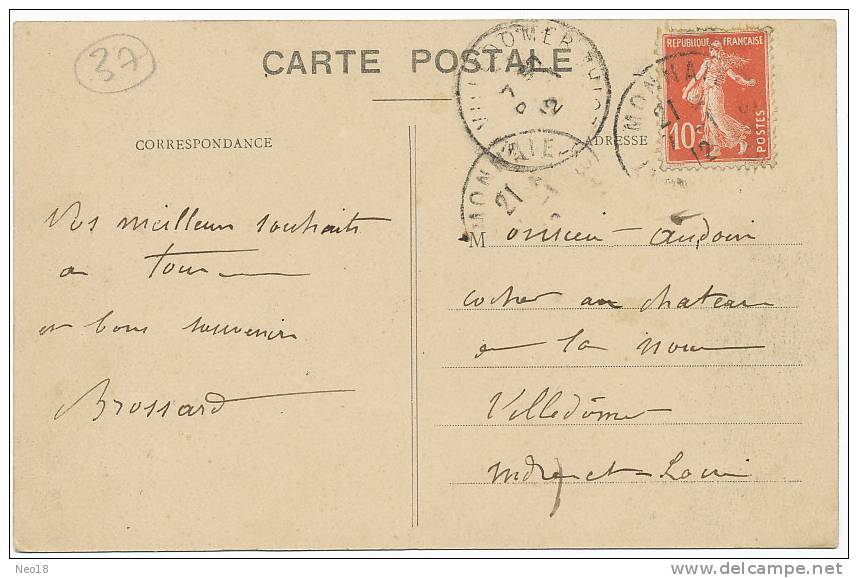 37
CARTE POSTALE
CORRESPONDANCE
ADRESSE
REPUBLIQUE FRANÇAISE
10c
POSTES
MONNAIE
21
12
MONNAIE
21
Vos meilleurs souhaits
a Tous
et bons souvenirs
Brossard
Monsieur Audoin
cocher au chateau
de la noue
Villedômer
Indre et Loire
Neo18
www.delcampe.net